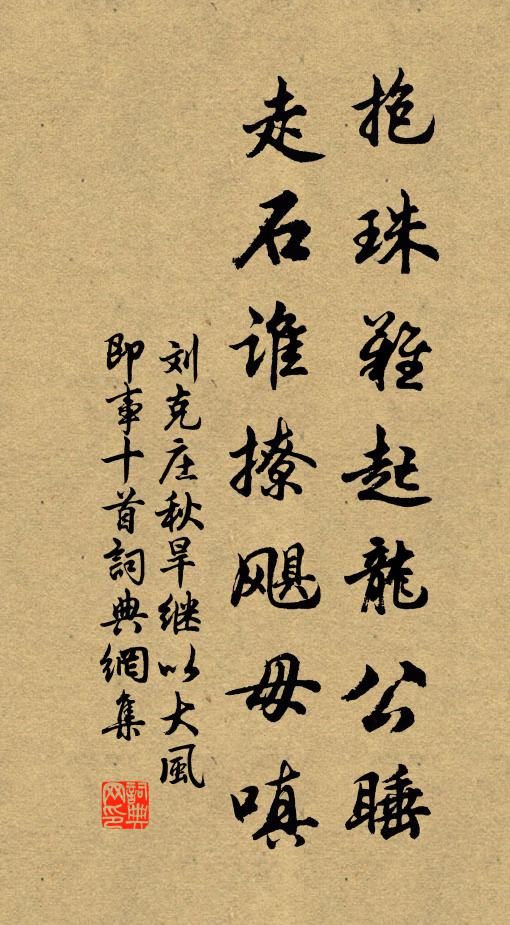 抱珠難起龍公睡
走石谁撩飓母嗔
刘克庄秋旱继以大風
即事十首詞典網集
詞典网印